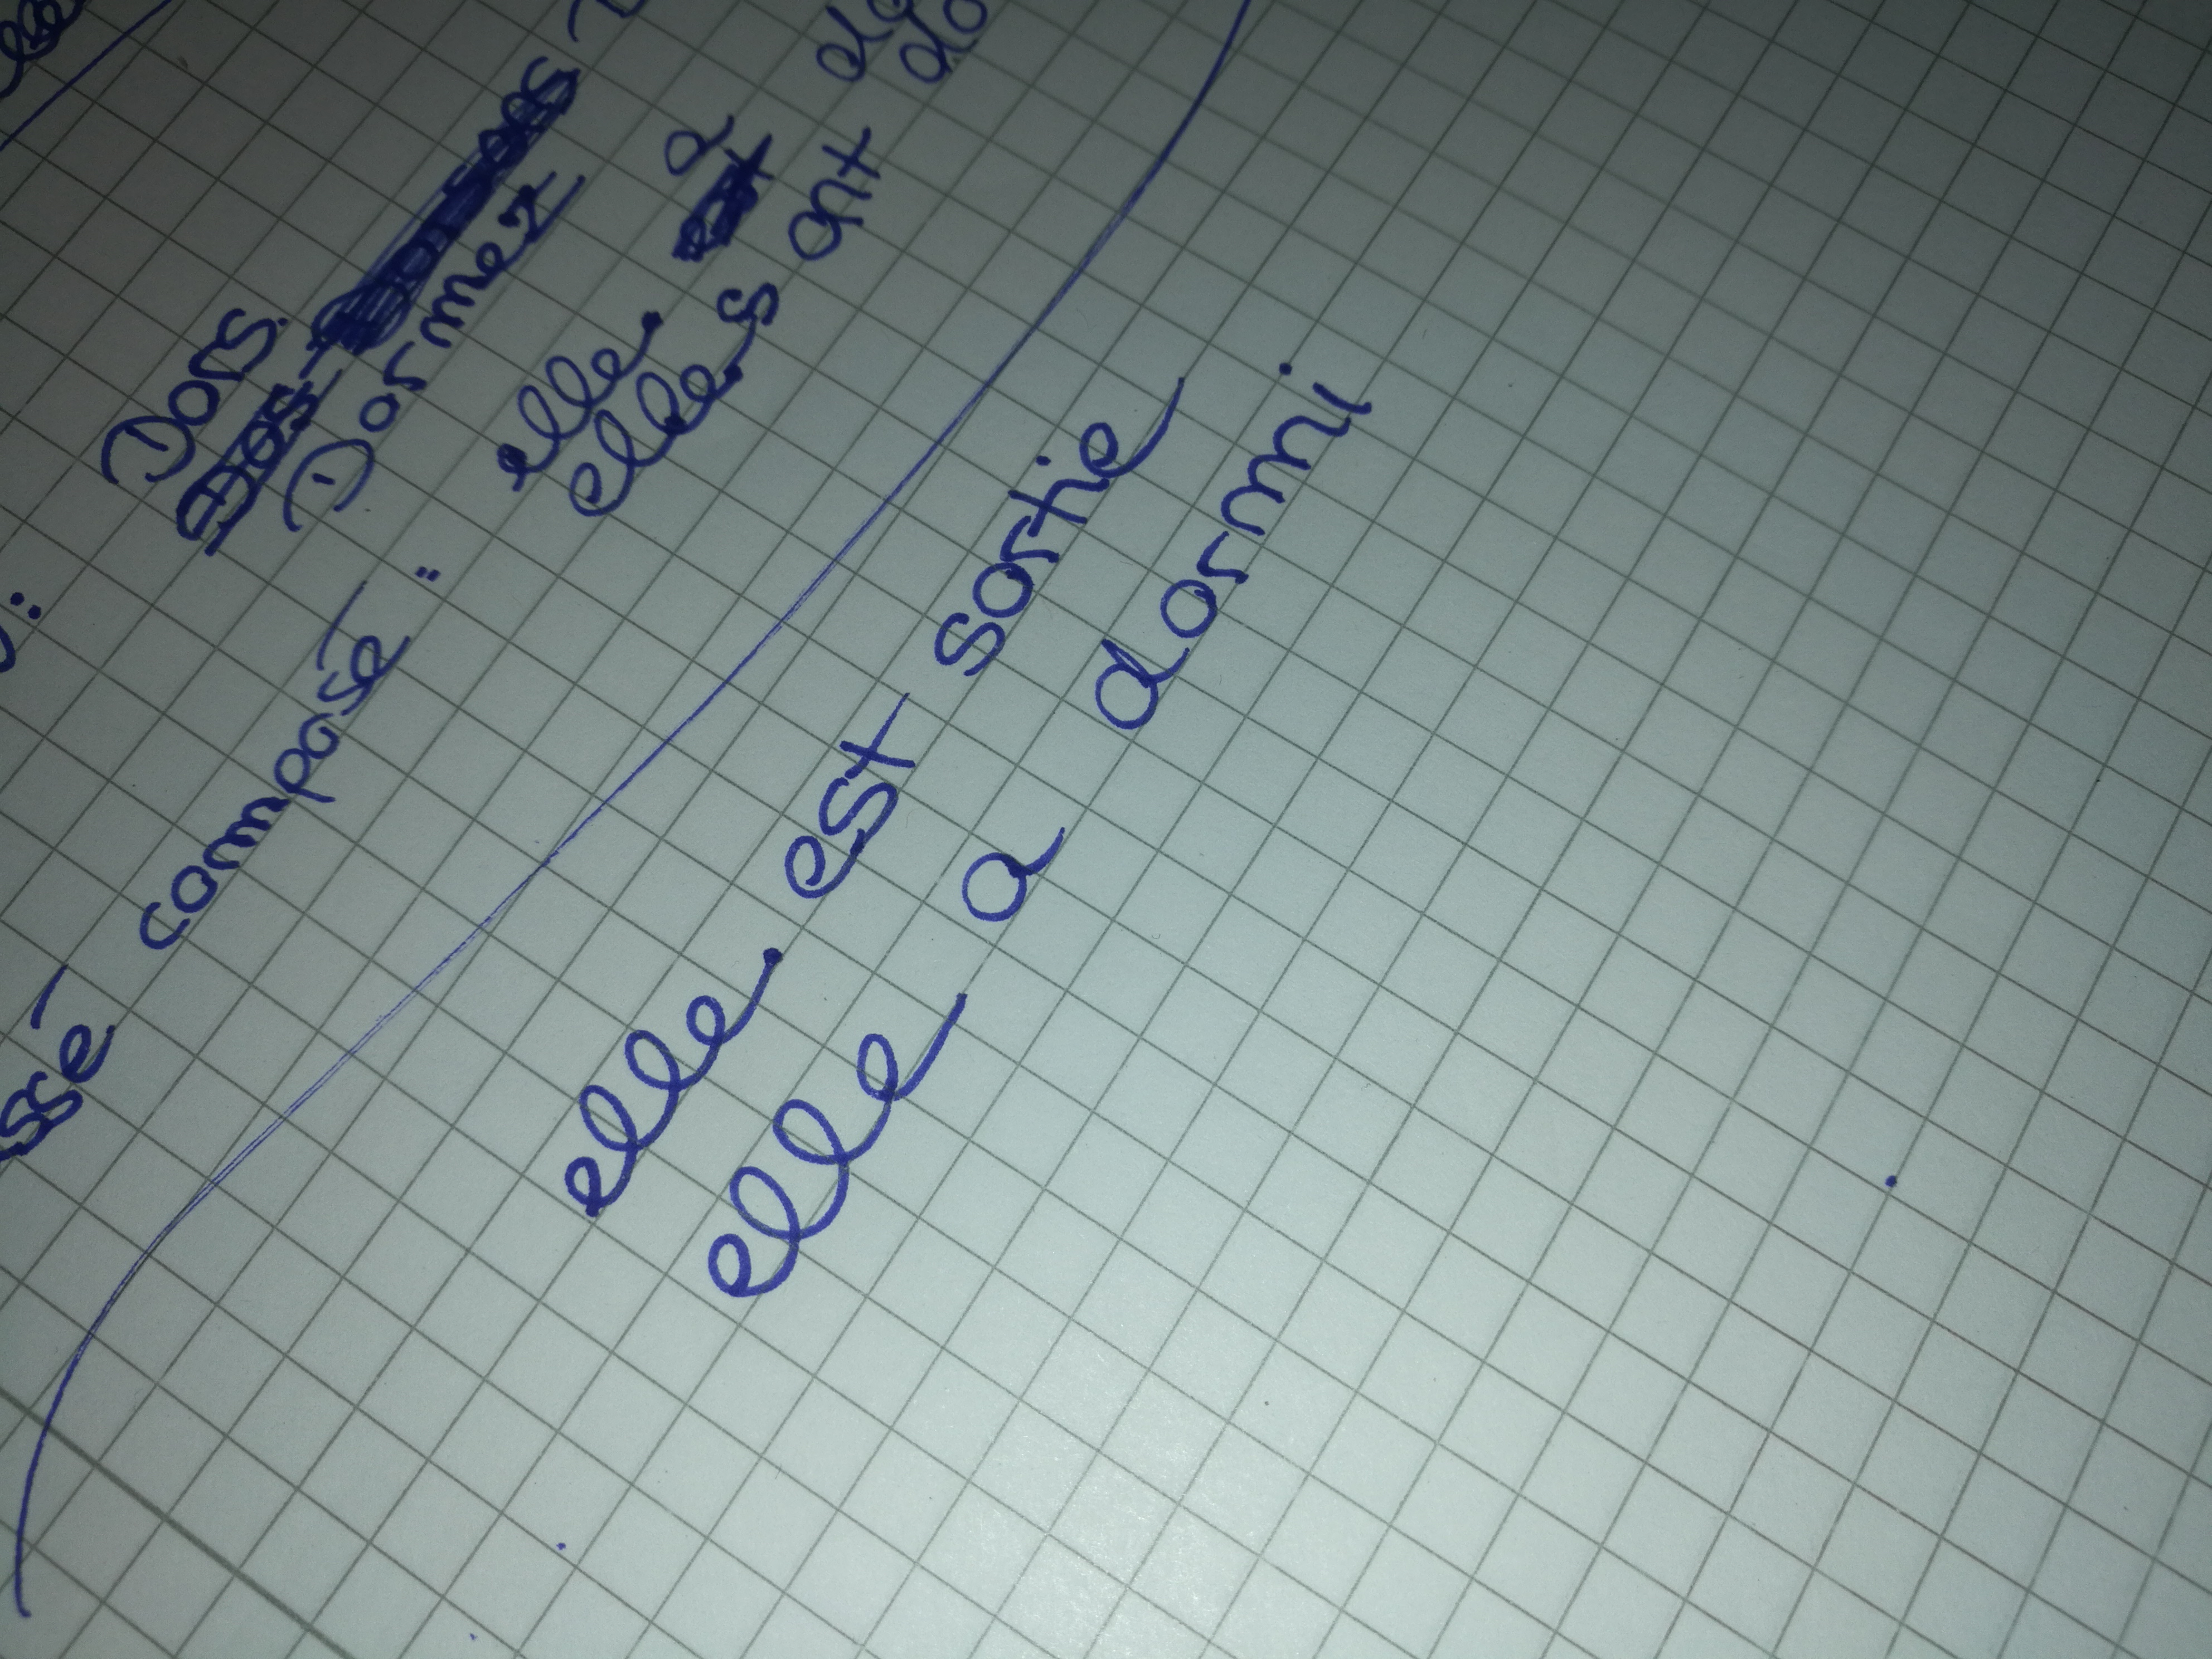 Dors.
Dormez
passé composé :
elle a
elles ont
elle est sortie
elle a dormi